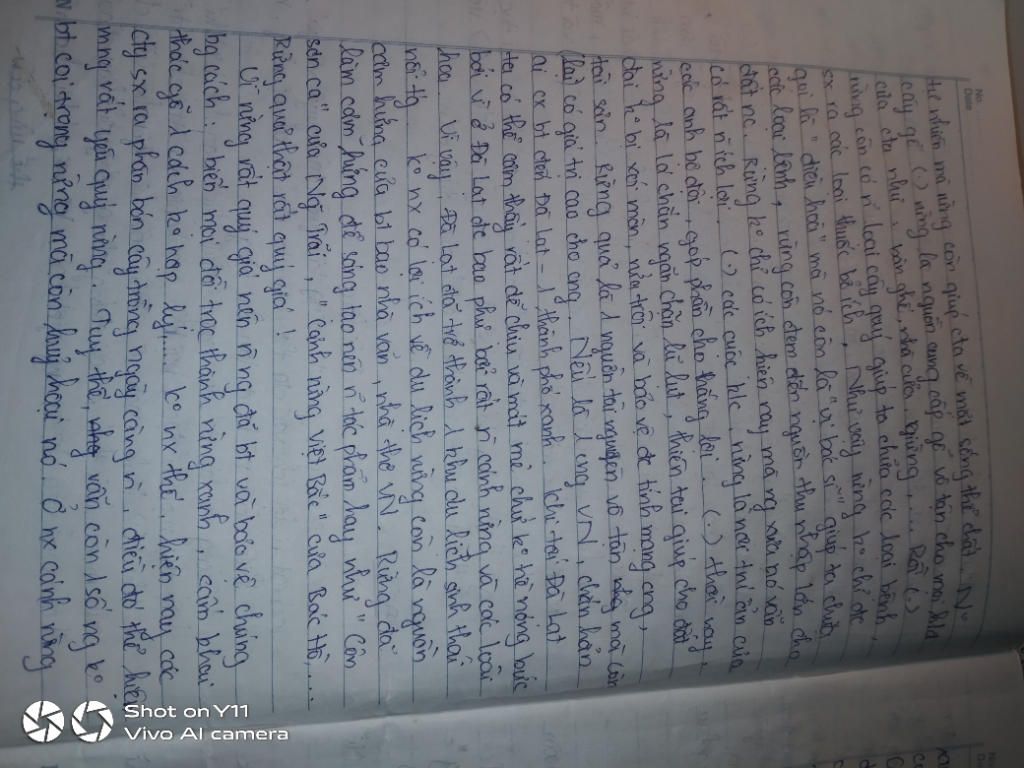 No.
Date
tự nhiên mà rừng còn giúp cta về mặt sống thể chất. N°
cây gỗ (.) rừng là nguồn cung cấp gỗ vô tận cho mọi
của cta như: bàn ghế, nhà cửa, giường, .... Rồi (.)
rừng còn có n loại cây quý giúp ta chữa các loại bệnh,
sx ra các loại thuốc bổ ích, Như vậy rừng k° chỉ đc
gọi là " điều hoà" mà nó còn là "vị bác sĩ" giúp ta chữa
các loại bệnh, rừng còn đem đến nguồn thu nhập lớn cho
đất nc. Rừng k° chỉ có ích hiện nay mà ng xưa nó vẫn
có rất n ích lợi. (.) các cuộc k/c, rừng là nơi trú ẩn của
các anh bộ đội, góp phần cho thắng lợi. (.) thời nay,
rừng là lá chắn ngăn chặn lũ lụt, thiên tai giúp cho đất
đai k° bị xói mòn, nửa trôi và bảo vệ đc tính mạng cng,
tài sản. Rừng quả là 1 nguồn tài nguyên vô tận mà còn
lại có giá trị cao cho cng. Nếu là 1 cng VN, chắn hẳn
ai cx bt đến Đà Lạt - 1 thành phố xanh. Khi tới Đà Lạt
ta có thể cảm thấy rất dễ chịu và mát mẻ chứ k° hề nóng bức
bởi vì ở Đà Lạt đc bao phủ bởi rất n cánh rừng và các loài
hoa. Vì vậy, Đà Lạt đã trở thành 1 khu du lịch sinh thái
nổi tg k° nx có lợi ích về du lịch rừng còn là nguồn
cảm hứng của bt bao nhà văn, nhà thơ VN. Rừng đã
làm cảm hứng để sáng tạo nên n tác phẩm hay như " Côn
sơn ca" của Ng Trãi, " cảnh rừng việt Bắc" của Bác Hồ,...
Rừng quả thật rất quý giá!
Vì rừng rất quý giá nên n ng đã bt và bảo vệ chúng
bg cách: biến mọi đồi trọc thành rừng xanh, cấm phai
thác gỗ 1 cách k° hợp lý,... k° nx thế, hiện nay các
cty sx ra phân bón cây trồng ngày càng n, điều đó thể hiện
mng rất yêu quý rừng. Tuy thế, vẫn còn 1 số ng k°
bt coi trọng rừng mà còn huỷ hoại nó. Ở nx cánh rừng
Shot on Y11
Vivo AI camera